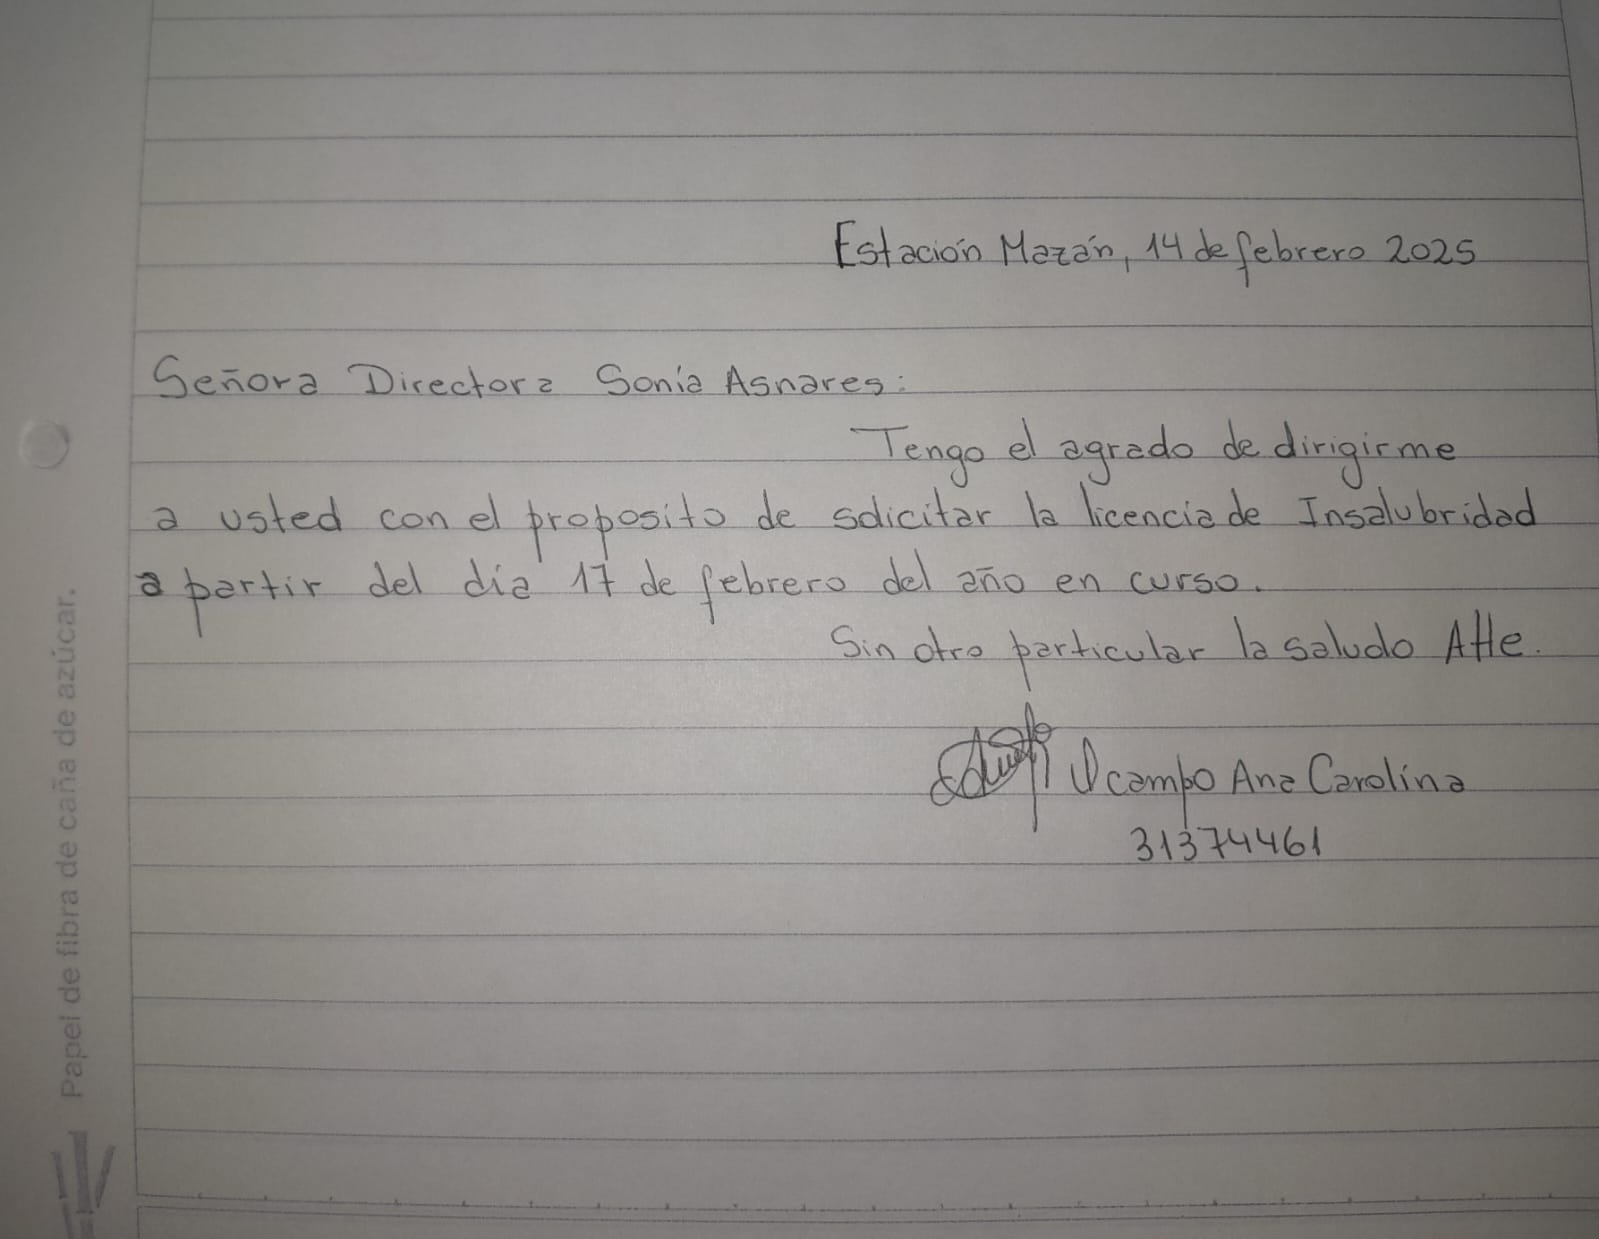 Estación Mazán, 14 de febrero 2025
Señora Directora Sonia Asnares:
Tengo el agrado de dirigirme
a usted con el proposito de solicitar la licencia de Insalubridad
a partir del día 17 de febrero del año en curso.
Sin otro particular la saludo Atte.
Ocampo Ana Carolina
31374461
Papel de fibra de caña de azúcar.